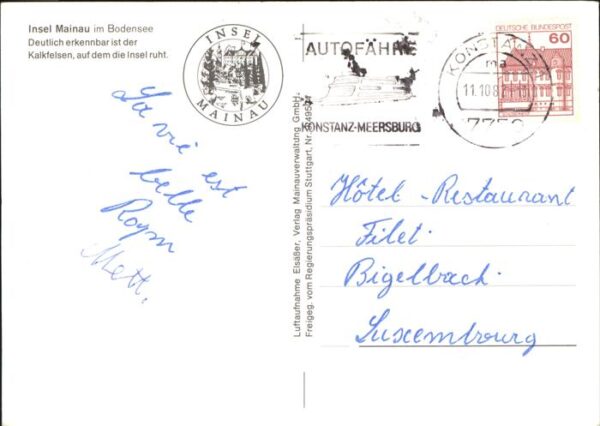 Insel Mainau im Bodensee
Deutlich erkennbar ist der
Kalkfelsen, auf dem die Insel ruht.
INSEL
MAINAU
AUTOFÄHRE
KONSTANZ-MEERSBURG
KONSTANZ
ma
11.10.8
775
DEUTSCHE BUNDESPOST
60
La vie est
belle
Roym
Mett.
Luftaufnahme Elsäßer, Verlag Mainauverwaltung GmbH.
Freigeg. vom Regierungspräsidium Stuttgart, Nr.
Hôtel-Restaurant
Filet
Bigelbach
Luxembourg